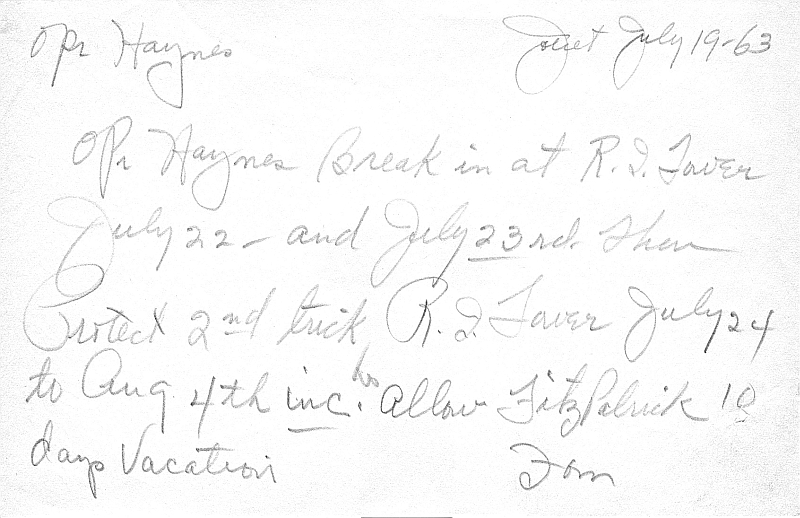 OPr Haynes Joliet July 19-63
OPr Haynes Break in at R.I. Tower
July 22 - and July 23rd. Then
Protect 2nd trick R.I. Tower July 24
to Aug 4th inc. Allow FitzPatrick 10
days Vacation Tom